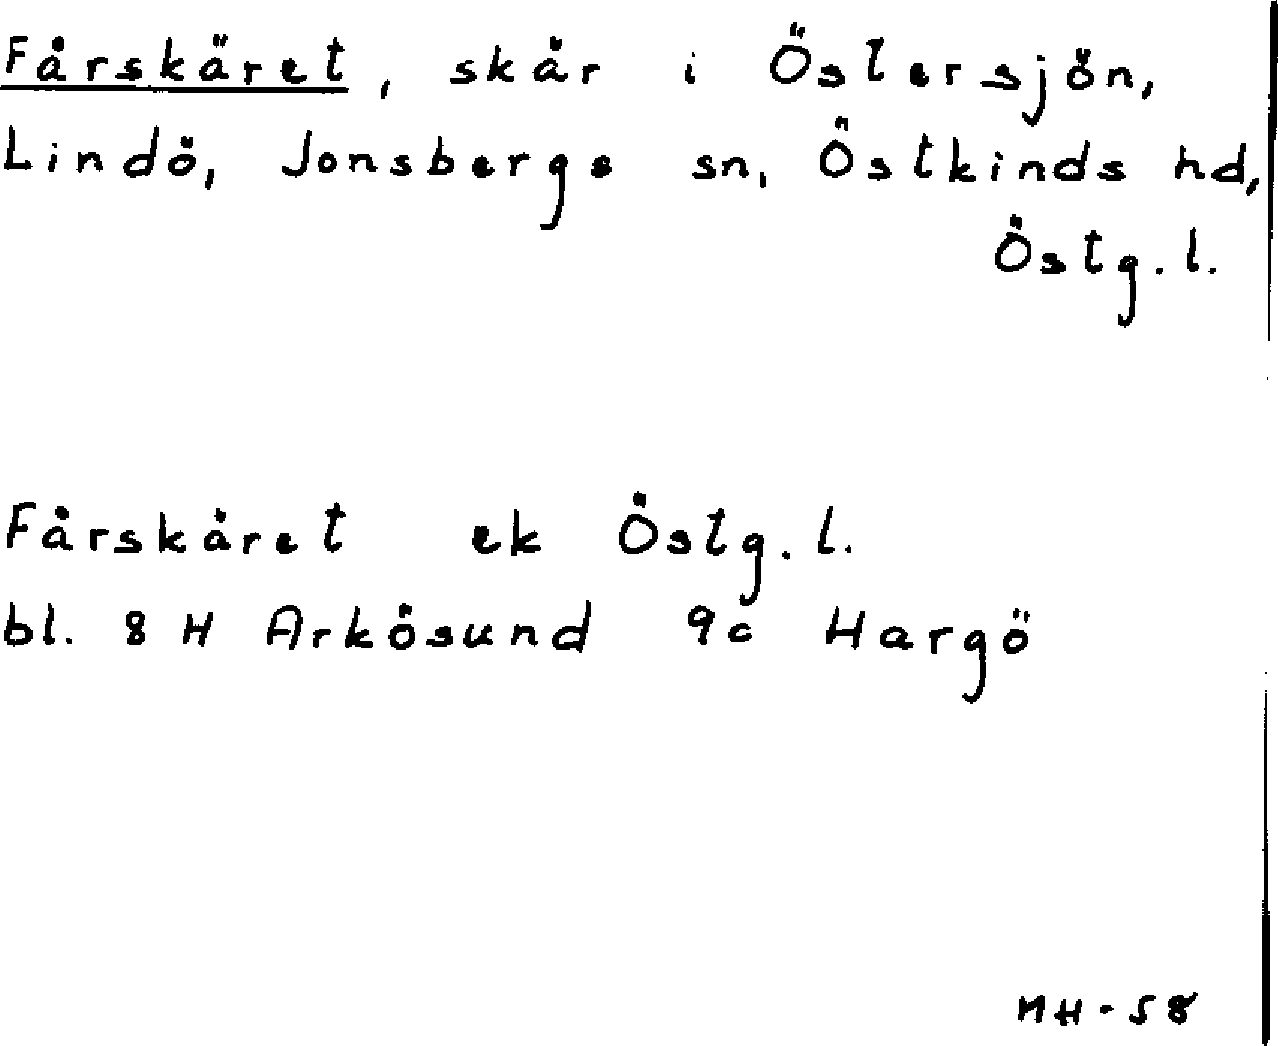 Fårskäret, skär i Östersjön,
Lindö, Jonsbergs sn, Östkinds hd,
Östg.l.
Fårskäret ek Östg.l.
bl. 8 H Arkösund 9c Hargö
MH-58